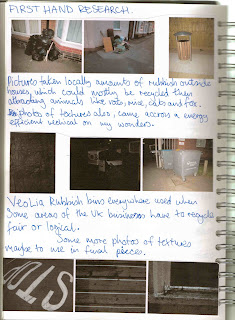 FIRST HAND RESEARCH.
Pictures taken locally amounts of rubbish outside
houses, which could mostly be recycled then
attracting animals like rats, mice, cats and fox.
photos of textures also, came accross a energy
efficient vechical on my wonders.
Veolia Rubbish bins everywhere used when
Some areas of the UK business have to recycle
fair or logical.
Some more photos of textures
maybe to use in final pieces.
STOP